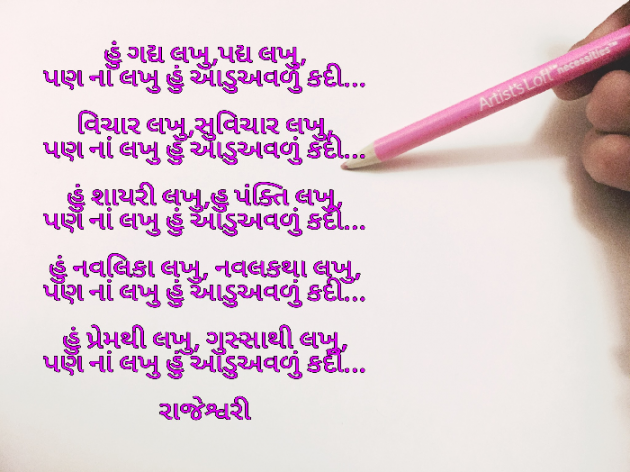 હું ગદ્ય લખુ,પદ્ય લખુ,
પણ નાં લખુ હું આડુઅવળું કદી...
વિચાર લખુ,સુવિચાર લખુ,
પણ નાં લખુ હું આડુઅવળું કદી...
હું શાયરી લખુ,હુ પંક્તિ લખુ,
પણ નાં લખુ હું આડુઅવળું કદી...
હું નવલિકા લખુ, નવલકથા લખુ,
પણ નાં લખુ હું આડુઅવળું કદી...
હું પ્રેમથી લખુ, ગુસ્સાથી લખુ,
પણ નાં લખુ હું આડુઅવળું કદી...
રાજેશ્વરી
Artist's Loft™ necessities™